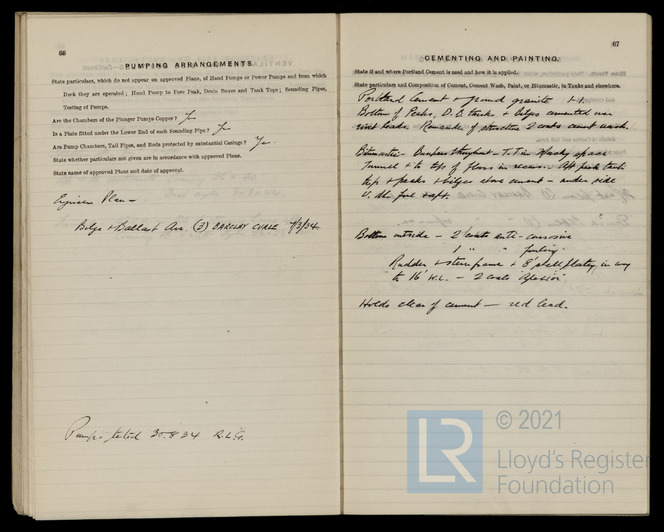 66
PUMPING ARRANGEMENTS.
State particulars, which do not appear on approved Plans, of Hand Pumps or Power Pumps and from which
Deck they are operated; Hand Pump to Fore Peak, Drain Boxes and Tank Tops; Sounding Pipes,
Testing of Pumps.
Are the Chambers of the Plunger Pumps Copper? Yes
Is a Plate fitted under the Lower End of each Sounding Pipe? Yes
Are Pump Chambers, Tail Pipes, and Rods protected by substantial Casings? Yes.
State whether particulars not given are in accordance with approved Plans.
State name of approved Plans and date of approval.
Plan
Bilge & Ballast Arr. (3) BARCLAY CURLE 7/3/34
Pumps tested 30.8.34 R.L.G.
67
CEMENTING AND PAINTING.
State if and where Portland Cement is used and how it is applied.
State particulars and Composition of Cement, Cement Wash, Paint, or Bitumastic, in Tanks and elsewhere.
Portland Cement & ground granite 1-1.
Bottom of Peaks, D.B. tanks & bilges cemented over
rivet heads. Remainder of structure 2 coats cement wash.
Bitumastic - Bunkers throughout - T.T. in Machy space
Tunnel & to top of floors in recess. Aft peak tank
top & peaks & bilges above cement - under side
Bottom outside - 2 coats anti-corrosive
1 " " fouling
Rudder & sternframe & 8' shell plating in way
to 16' W.L. - 2 coats
Holds clear of cement - red lead.
LR
© 2021
Lloyd's Register
Foundation